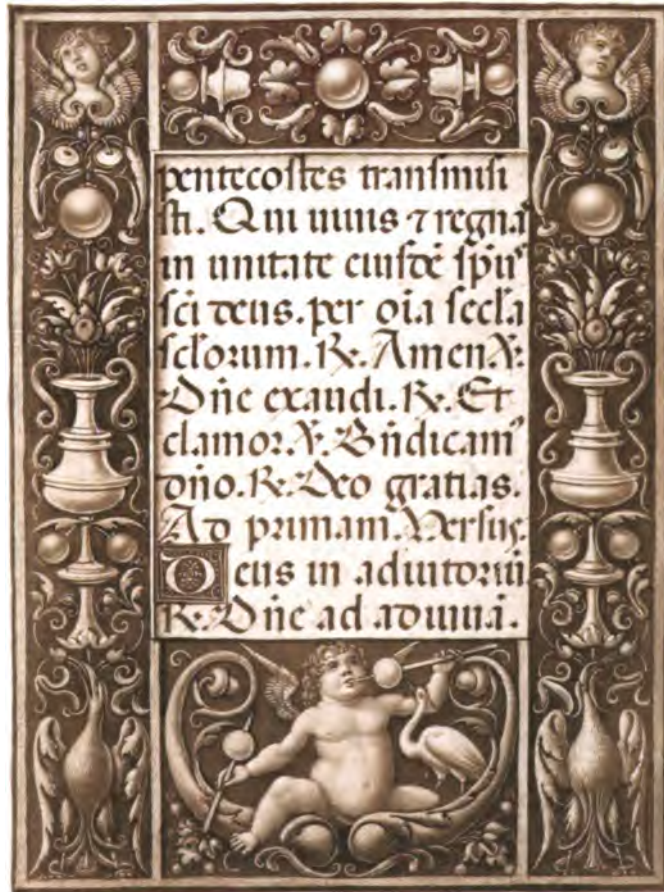 pentecostes transmisi
sti. Qui uiuis ⁊ regnã
in unitate eiusdẽ spũs
sc̃i deus. per oĩa secl̃a
scl̃orum. ℟. Amen. ℣.
Dñe exaudi. ℟. Et
clamor. ℣. Bñdicam̃
dño. ℟. Deo gratias.
Ad primam. Versus.
Deus in adiutoriũ.
℟. Dñe ad adiuuã.